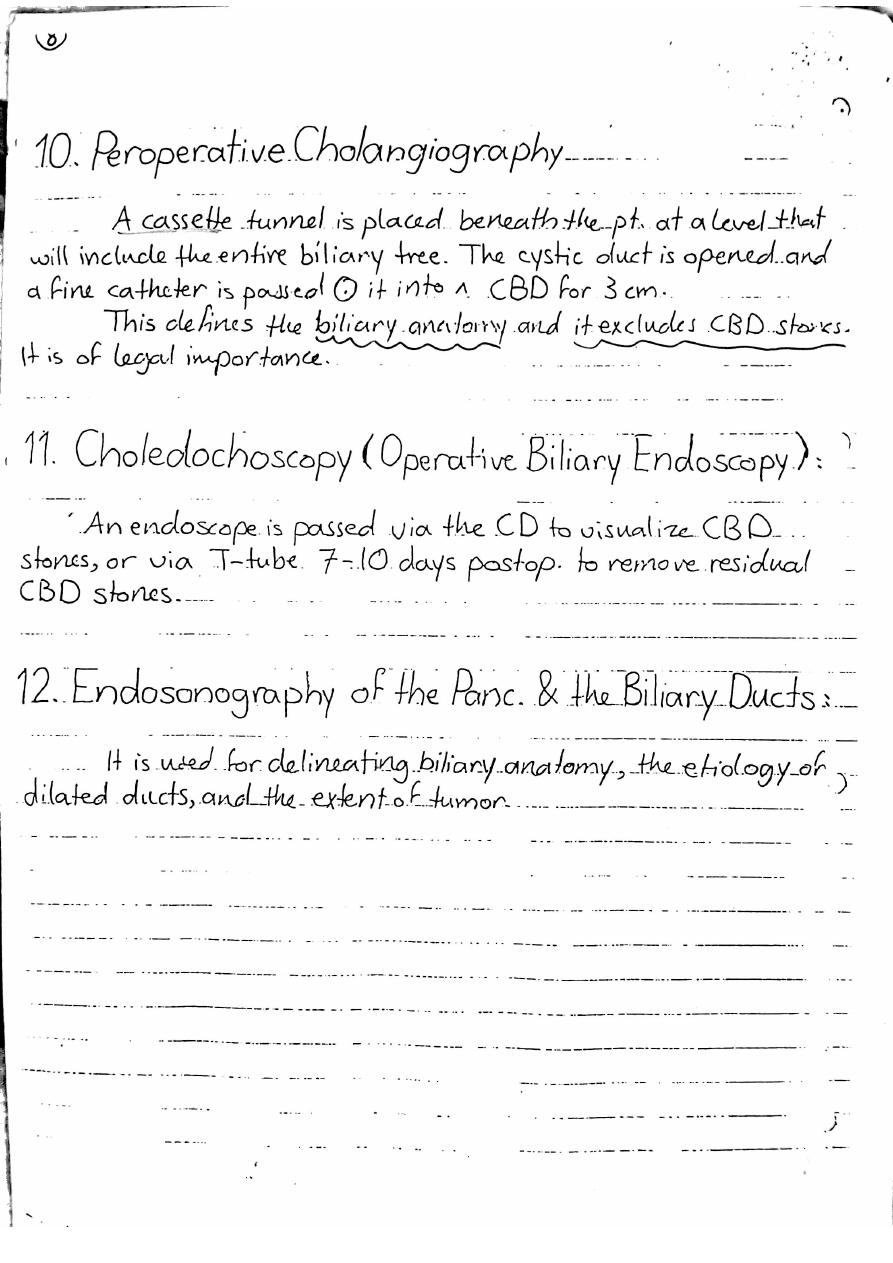 10. Peroperative Cholangiography
A cassette tunnel is placed beneath the pt. at a level that
will include the entire biliary tree. The cystic duct is opened and
a fine catheter is passed ⊙ it into ^ CBD for 3 cm.
This defines the biliary anatomy and it excludes CBD stones.
It is of legal importance.
11. Choledochoscopy (Operative Biliary Endoscopy):
An endoscope is passed via the CD to visualize CBD
stones, or via T-tube 7-10 days postop. to remove residual
CBD stones.
12. Endosonography of the Panc. & the Biliary Ducts:
It is used for delineating biliary anatomy, the etiology of
dilated ducts, and the extent of tumor